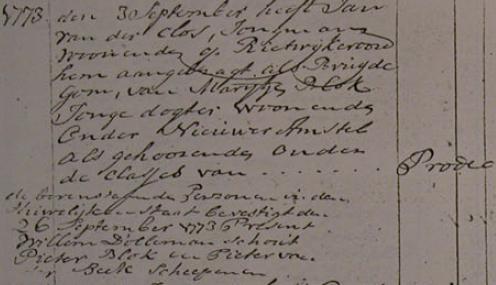 1773 den 3 September heeft Jan
van der Clos, Jongman
woonende op Rietwijkeroord
hem aangebragt, als Bruyde
Gom, van Marytje Blok
Jonge dogter woonende
Onder Nieuwer Amstel
als gehoorende onder
de classes van . . . . . . . Prodeo
de bovenstaande Personen in den
Huwelijken Staat bevestigt den
26 September 1773 Present
Willem Dolleman Schout
Pieter Blok en Pieter van
der Beek Scheepenen